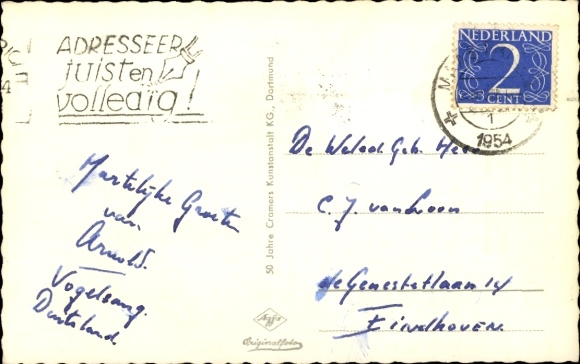 ADRESSEER
juist en
volledig!
NEDERLAND
2
CENT
1
1954
Hartelijke Groeten
van
Arnold.
Vogelsang.
Duitsland
50 Jahre Cramers Kunstanstalt KG., Dortmund
De Weled. Geb. Heer
C. J. van Loon
de Genestetlaan 14
Eindhoven
Agfa
Originalfoto